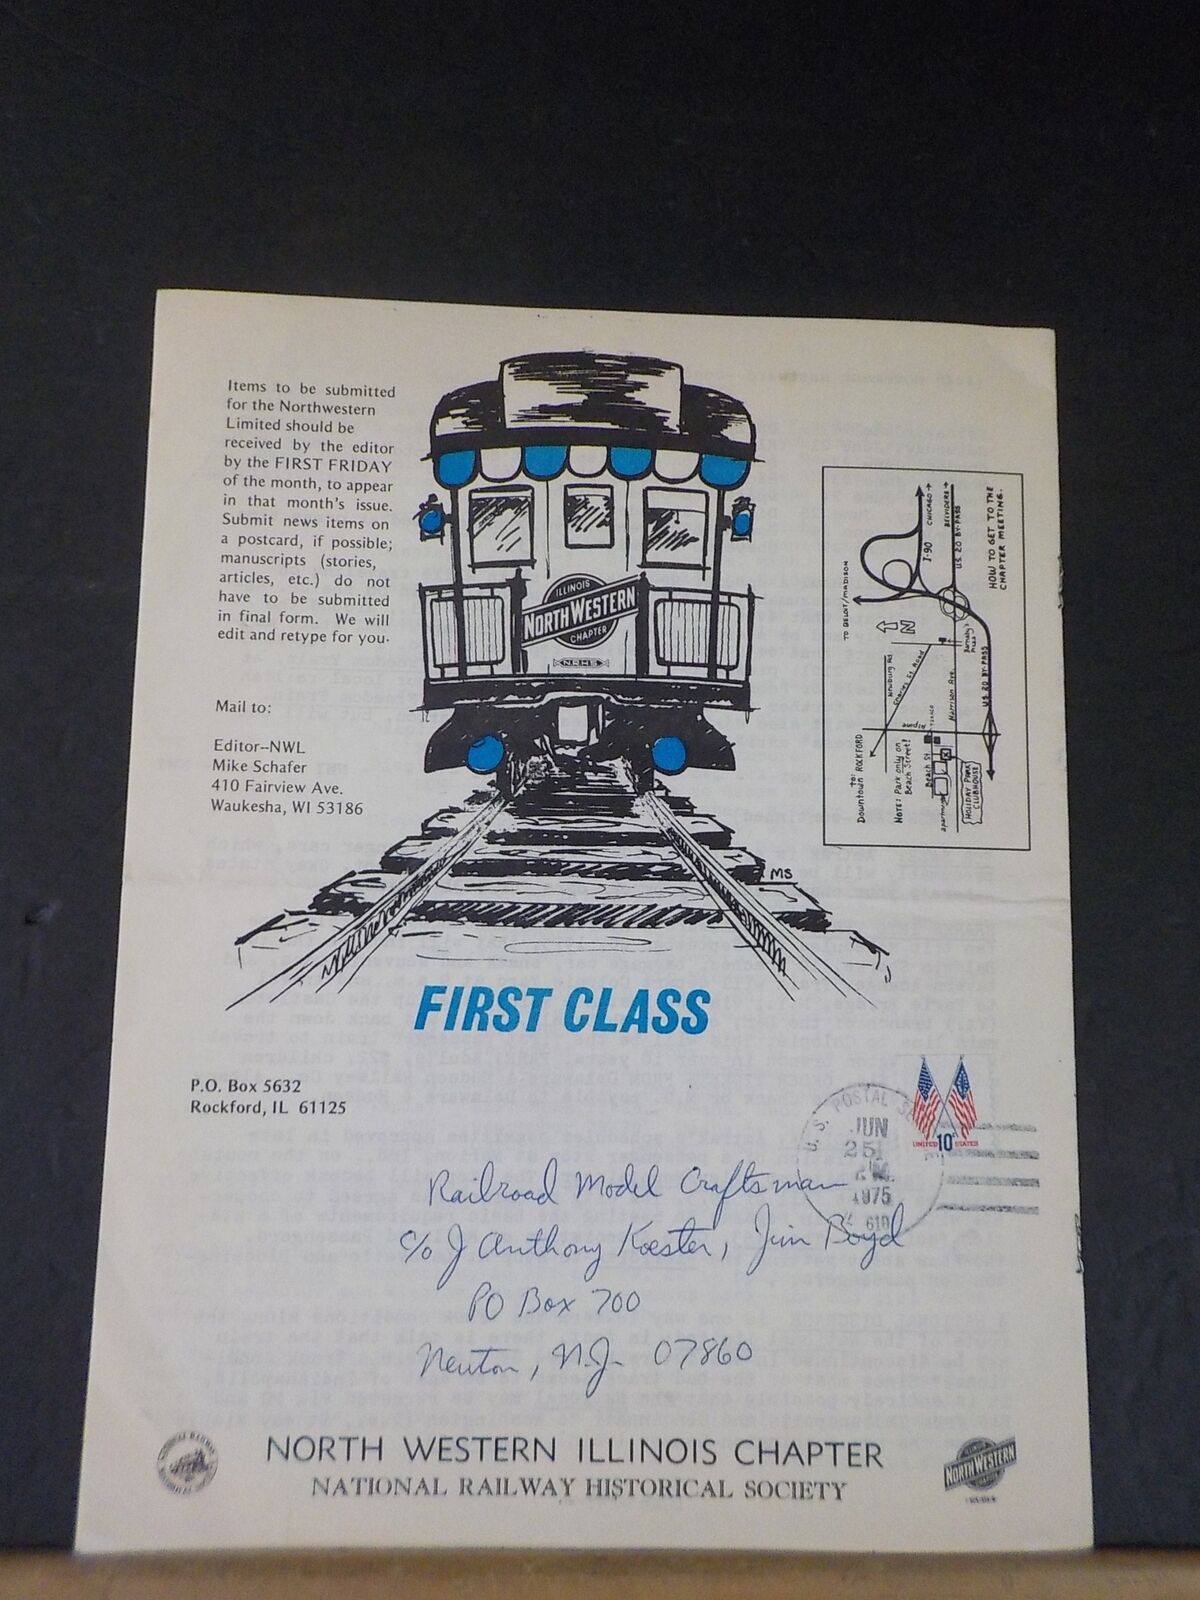 Items to be submitted
for the Northwestern
Limited should be
received by the editor
by the FIRST FRIDAY
of the month, to appear
in that month's issue.
Submit news items on
a postcard, if possible;
manuscripts (stories,
articles, etc.) do not
have to be submitted
in final form. We will
edit and retype for you.
Mail to:
Editor--NWL
Mike Schafer
410 Fairview Ave.
Waukesha, WI 53186
ILLINOIS
NORTH WESTERN
CHAPTER
NRHS
MS
HOW TO GET TO THE
CHAPTER MEETING.
TO BELOIT/MADISON
I-90
CHICAGO→
BELVIDERE→
U.S. 20 BY-PASS
N
Newburg Rd.
Charles St. Road
Harrison Ave.
Alpine
US 20 BY-PASS
To:
Downtown ROCKFORD
NOTE: Park only on
Beach Street!
Beach St.
HOLIDAY PARK
CLUBHOUSE
FIRST CLASS
P.O. Box 5632
Rockford, IL 61125
U.S. POSTAL
JUN
25
1975
610
UNITED 10c STATES
Railroad Model Craftsman
c/o J Anthony Koester, Jim Boyd
PO Box 700
Newton, N.J. 07860
NORTH WESTERN ILLINOIS CHAPTER
NATIONAL RAILWAY HISTORICAL SOCIETY
NORTH WESTERN